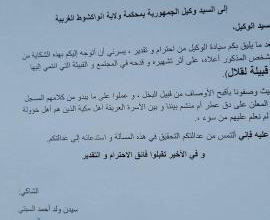 إلى السيد وكيل الجمهورية بمحكمة ولاية انواكشوط الغربية
السيد الوكيل،
بعد ما يليق بكم سيادة الوكيل من احترام و تقدير ، يسرني أن أتوجه إليكم بهذه الشكاية من
شخص المذكور أعلاه، على أثر تشهيره و قدحه في المجتمع و القبيلة التي انتمي إليها
قبيلة لقلال).
حيث وصفونا بأقبح الأوصاف من قبيل البخل ، و عملوا على ما يبدو من كلامهم المسجل
المعلن على دق عطر أم منشم بيننا و بين الأسرة العريقة أهل مكية الذين هم أهل خؤولة
لم نعلم عليهم من سوء .
عليه فاني ألتمس من عدالتكم التحقيق في هذه المسألة و استدعائه إلى عدالتكم.
و في الأخير تقبلوا فائق الاحترام و التقدير
الشاكي:
سيدن ولد أحمد السبتي